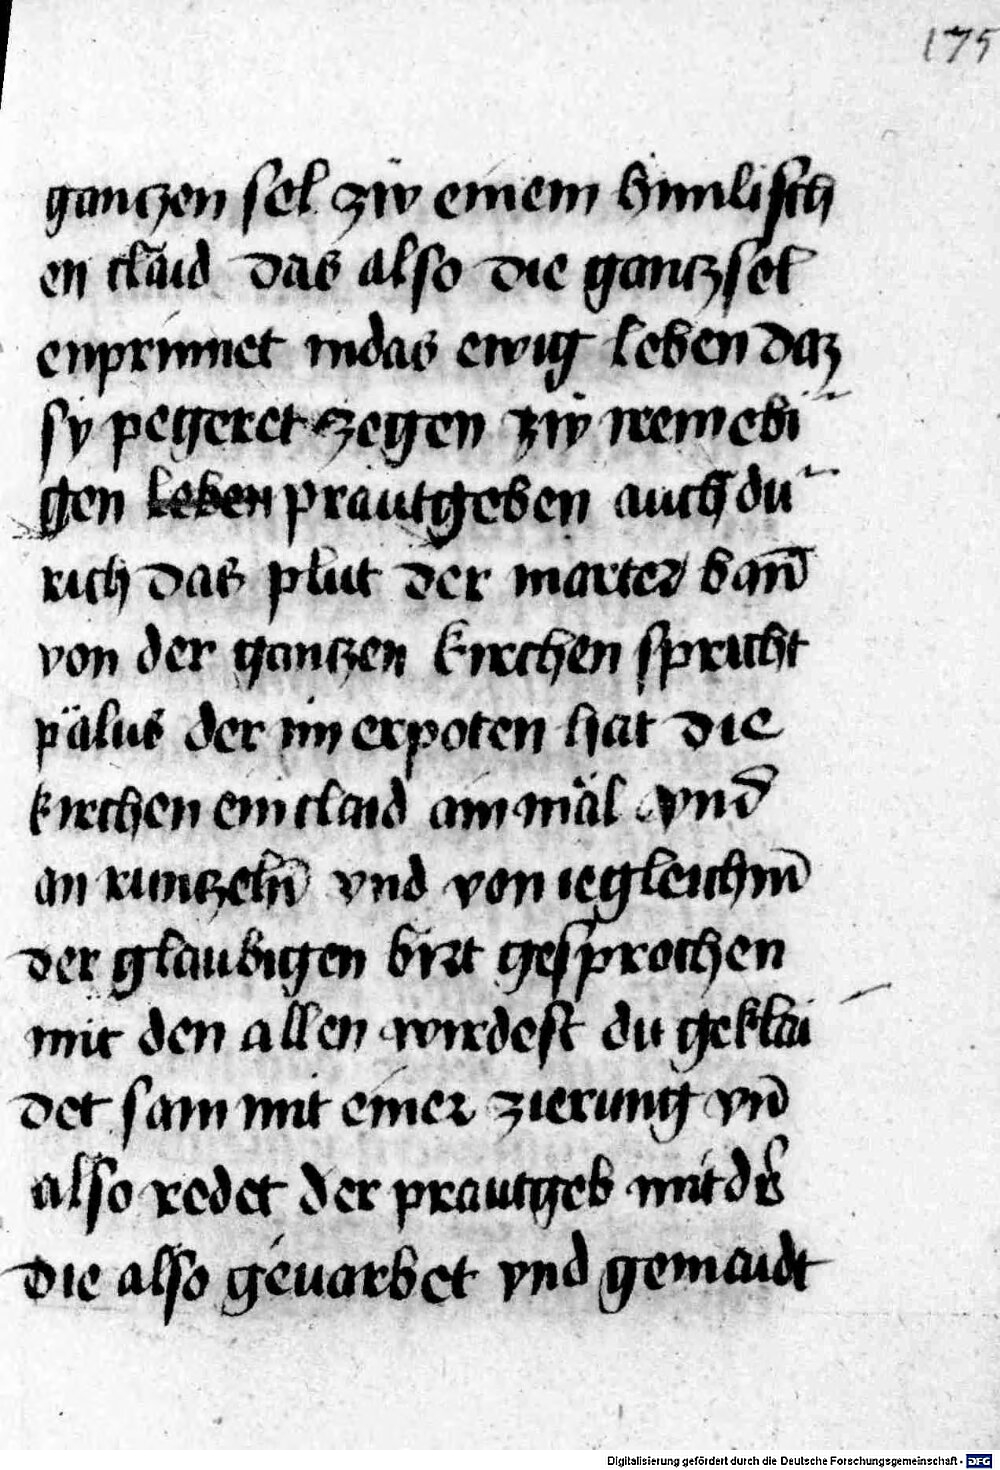 175
gantzen sel zw̋ einem himlisch
en claid das also die gantz sel
enprinnet in das ewig leben daz
sy pegeret zegen zw̋ irem ebi
gen leben prautgeben auch du
rich das plut der marter
von der gantzen kirchen spricht
pälus der im expoten hat die
kirchen ein claid an mäl vnd̄
an runtzeln̄ vnd von iegleichm̄
der glaubigen gesprochen
mit den allen wirdest du geklai
det sam mit einer zierung vn̄
also redet der prautgeb mit
die also geuarbet vnd gemaudt
Digitalisierung gefördert durch die Deutsche Forschungsgemeinschaft - DFG